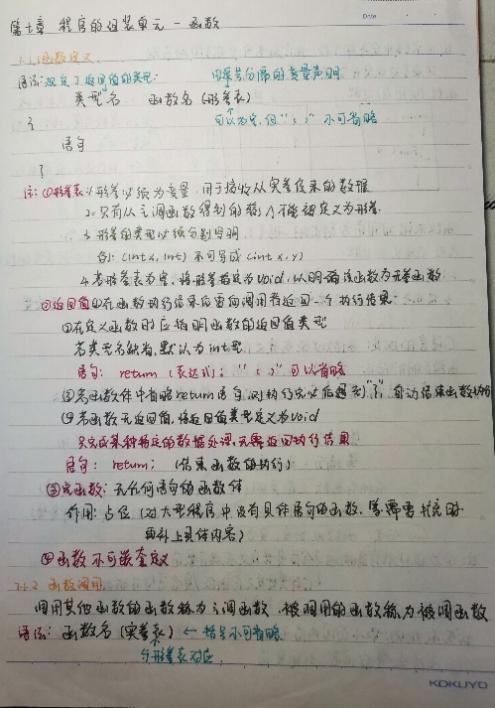 第七章 程序的组装单元-函数
Date
7.1.1 函数定义
语法:规定了返回值的类型: 由逗号分隔的变量声明
类型名 函数名(形参表)
{ 可以为空,但"( )"不可省略
语句
}
注:①形参表 1.形参必须为变量,用于接收从实参传来的数据
2.只有从主调函数得到的数据才能被定义为形参.
3.形参的类型必须分别写明
例:(int x, int) 不可写成 (int x, y)
4.若形参表为空,将形参指定为void,以明确该函数为无参函数
②返回值 在函数执行结束后要向调用者返回一个执行结果
在定义函数时应指明函数的返回值类型
若类型名缺省,默认为int型
语句: return (表达式); "( )"可以省略
若函数体中省略return语句,则执行完毕后遇到"}",自动结束函数执行
若函数无返回值,将返回值类型定义为void
只完成某种特定的数据处理,无需返回执行结果
语句: return; (结束函数的执行)
③空函数:无任何语句的函数体
作用:占位(对大型程序中没有具体语句的函数,等需要扩充时
再补上具体内容)
④函数不可嵌套定义
7.1.2 函数调用
调用其他函数的函数称为主调函数,被调用的函数称为被调函数
语法:函数名(实参表) ← 括号不可省略
与形参表对应
KOKUYO